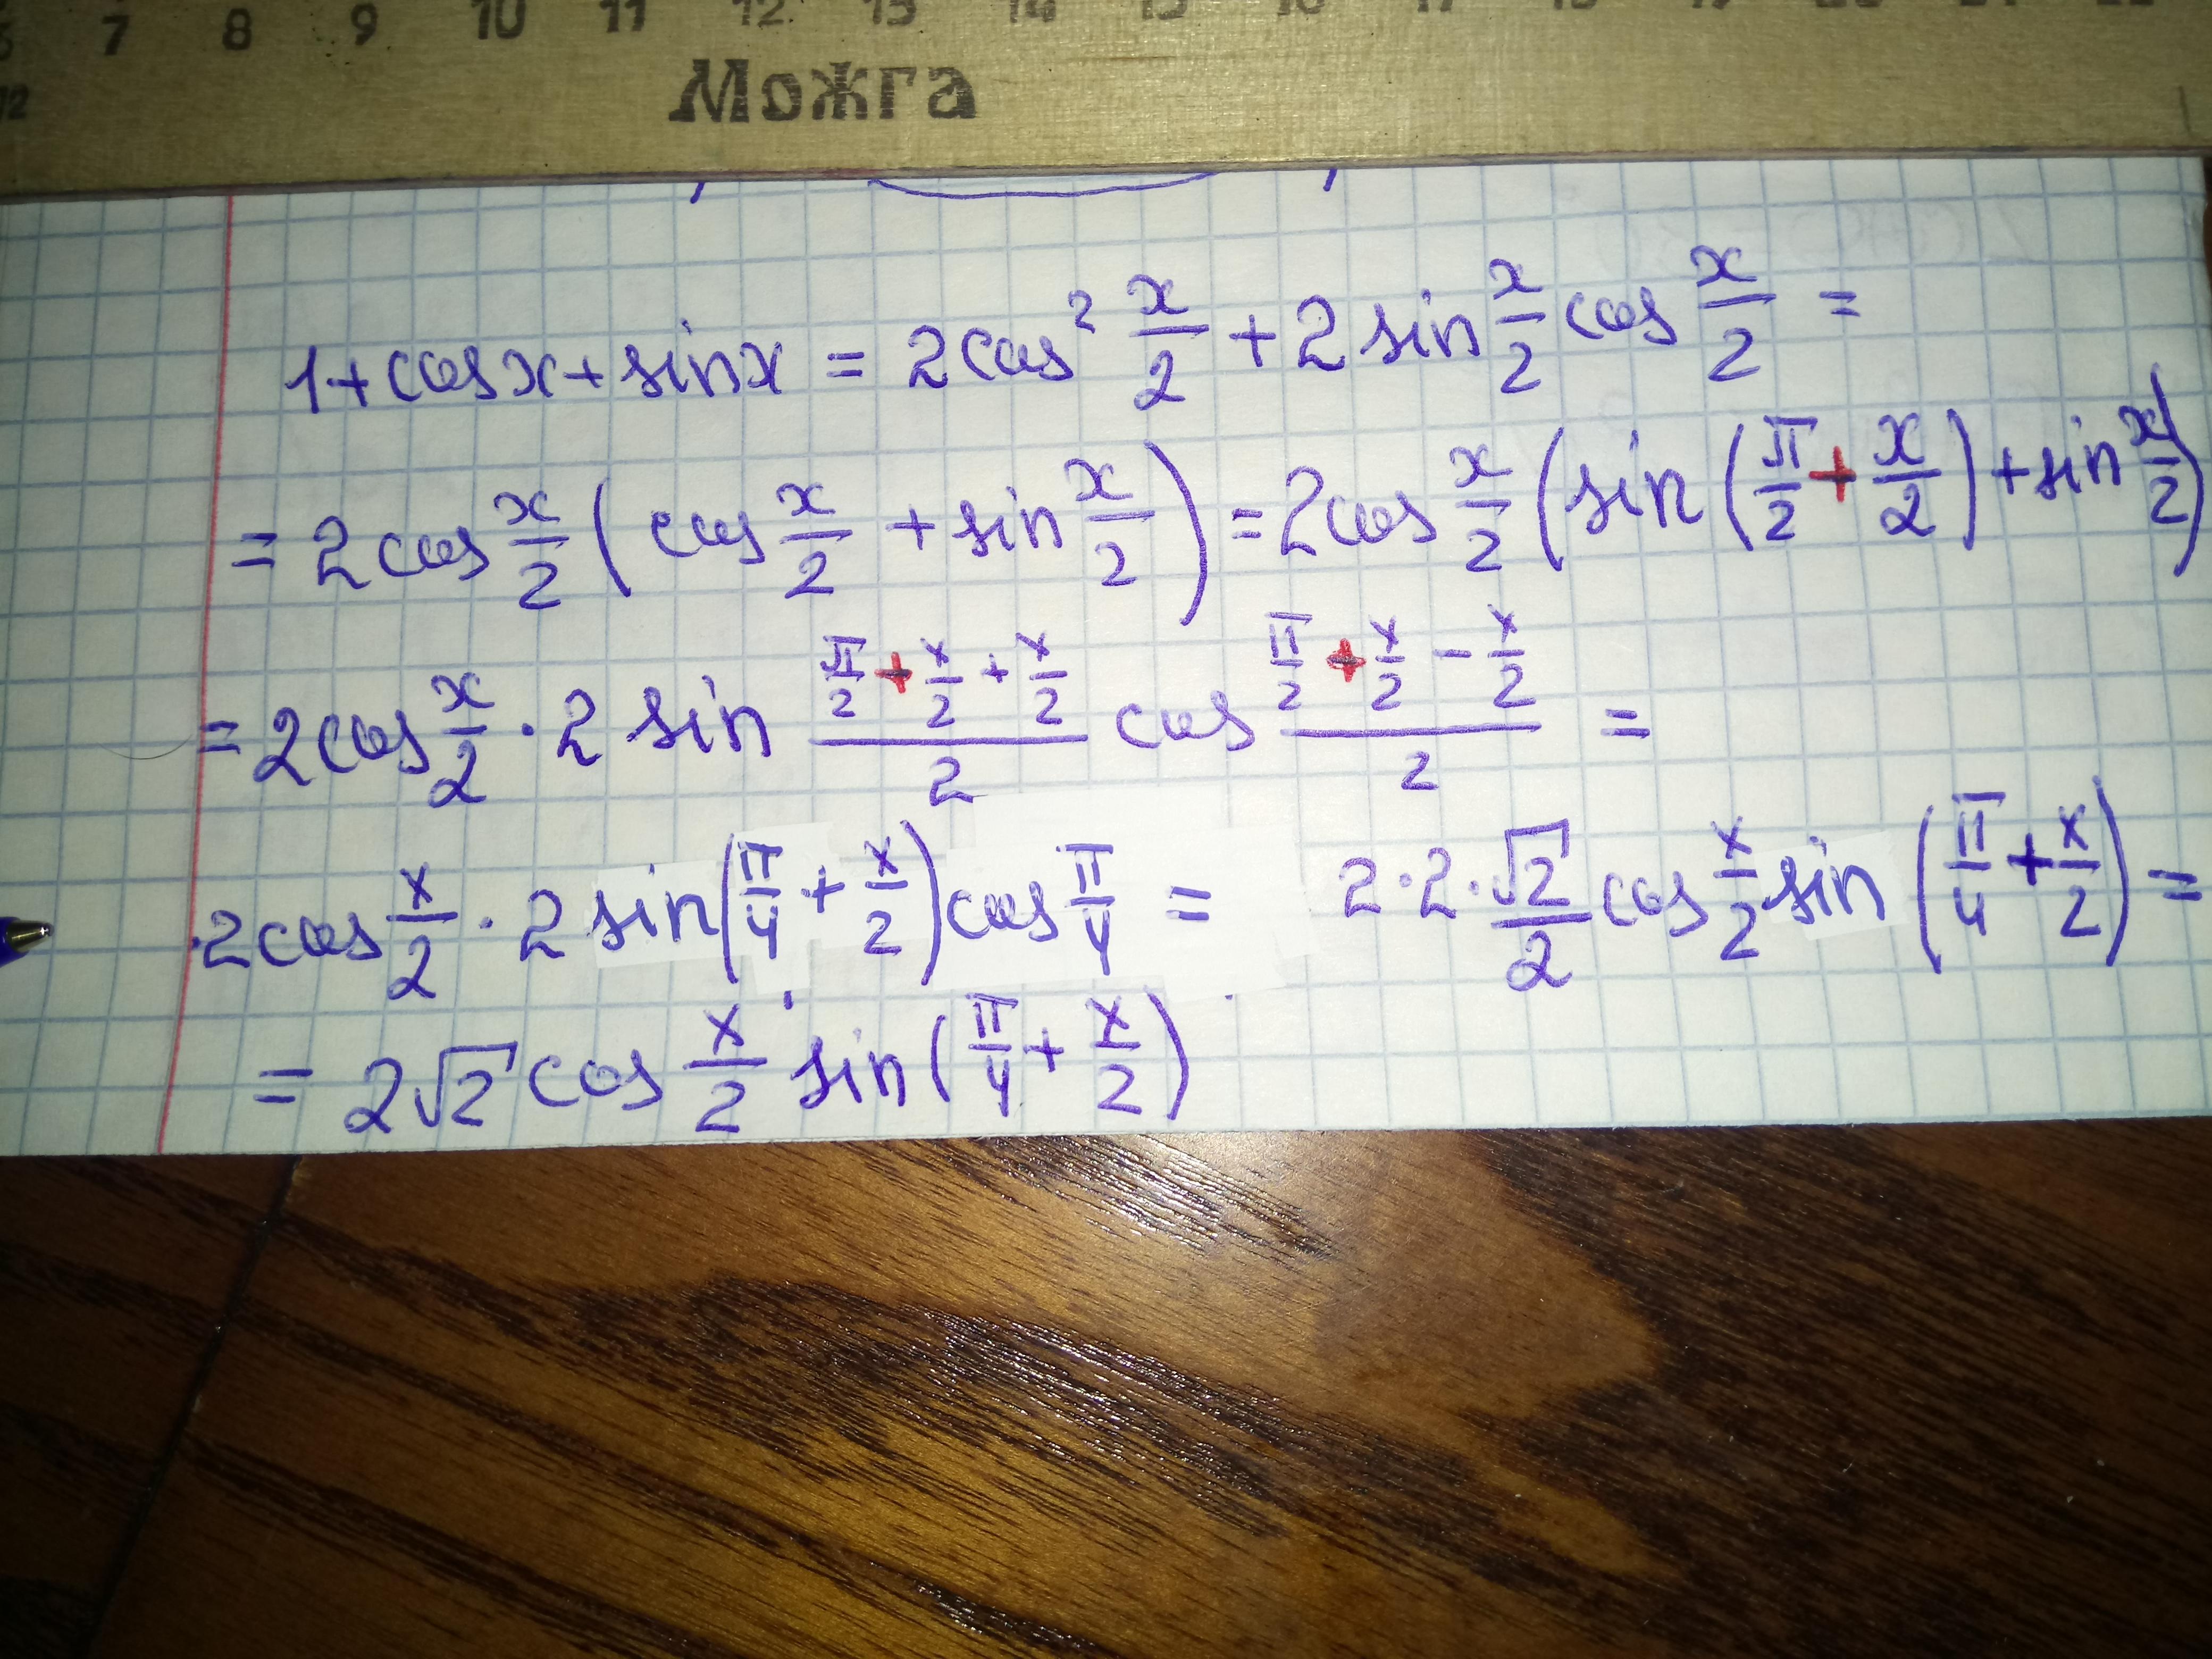 7 8 9 10 11 12 13 14 15 16 17 18 19 20 21 22
12
Можга
1+cosx+sinx = 2cos² x/2 + 2 sin x/2 cos x/2 =
= 2cos x/2 (cos x/2 + sin x/2) = 2cos x/2 (sin (π/2 + x/2) + sin x/2)
= 2cos x/2 · 2 sin (π/2 + x/2 + x/2)/2 cos (π/2 + x/2 - x/2)/2 =
·2cos x/2 · 2 sin(π/4 + x/2) cos π/4 = 2·2·√2/2 cos x/2 sin (π/4 + x/2) =
= 2√2 cos x/2 sin (π/4 + x/2)